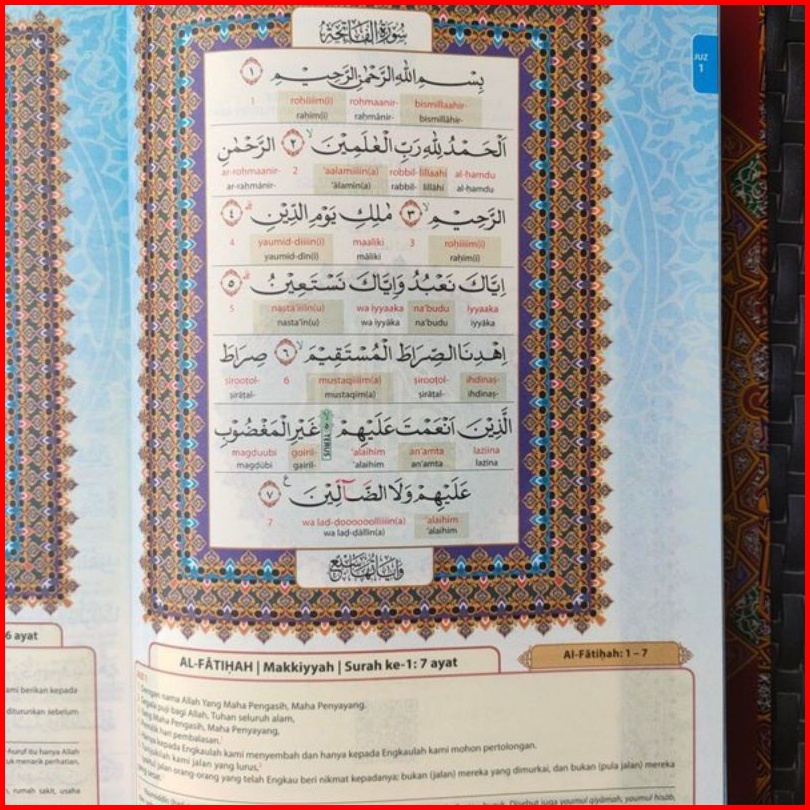 سُورَةُ الْفَاتِحَةِ
JUZ
1
بِسْمِ اللهِ الرَّحْمٰنِ الرَّحِيْمِ ١
1 rohiiiim(i) roḥmaanir- bismillaahir-
raḥīm(i) raḥmānir- bismillāhir-
اَلْحَمْدُ لِلّٰهِ رَبِّ الْعٰلَمِيْنَ ۙ ٢ الرَّحْمٰنِ
ar-roḥmaanir- 2 'aalamiiiin(a) robbil- lillaahi al-ḥamdu
ar-raḥmānir- 'ālamīn(a) rabbil- lillāhi al-ḥamdu
الرَّحِيْمِ ۙ ٣ مٰلِكِ يَوْمِ الدِّيْنِ ۗ ٤
4 yaumid-diiiin(i) maaliki 3 roḥiiiim(i)
yaumid-dīn(i) māliki raḥīm(i)
اِيَّاكَ نَعْبُدُ وَاِيَّاكَ نَسْتَعِيْنُ ۗ ٥
5 nasta'iiiin(u) wa iyyaaka na'budu iyyaaka
nasta'īn(u) wa iyyāka na'budu iyyāka
اِهْدِنَا الصِّرَاطَ الْمُسْتَقِيْمَ ۙ ٦ صِرَاطَ
ṣirooṭol- 6 mustaqiiiim(a) ṣirooṭol- ihdinaṣ-
ṣirāṭal- mustaqīm(a) ṣirāṭal- ihdinaṣ-
الَّذِيْنَ اَنْعَمْتَ عَلَيْهِمْ ەۙ TERUS غَيْرِ الْمَغْضُوْبِ
magduubi goiril- 'alaihim an'amta laziina
magḍūbi gairil- 'alaihim an'amta lazīna
عَلَيْهِمْ وَلَا الضَّاۤلِّيْنَ ࣖ ٧
7 wa laḍ-ḍoooooolliiiin(a) 'alaihim
wa laḍ-ḍāllīn(a) 'alaihim
وَاٰيَاتُهَا سَبْعٌ
6 ayat
AL-FĀTIḤAH | Makkiyyah | Surah ke-1: 7 ayat
Al-Fātiḥah: 1 – 7
Dengan nama Allah Yang Maha Pengasih, Maha Penyayang.
Segala puji bagi Allah, Tuhan seluruh alam,
Yang Maha Pengasih, Maha Penyayang,
Pemilik hari pembalasan.
Hanya kepada Engkaulah kami menyembah dan hanya kepada Engkaulah kami mohon pertolongan.
Tunjukilah kami jalan yang lurus,
(yaitu) jalan orang-orang yang telah Engkau beri nikmat kepadanya; bukan (jalan) mereka yang dimurkai, dan bukan (pula jalan) mereka
yang sesat.
Disebut juga yaumul qiyāmah, yaumul ḥisāb,
kami berikan kepada
diturunkan sebelum
itu hanya Allah
untuk menarik perhatian,
rumah sakit, usaha